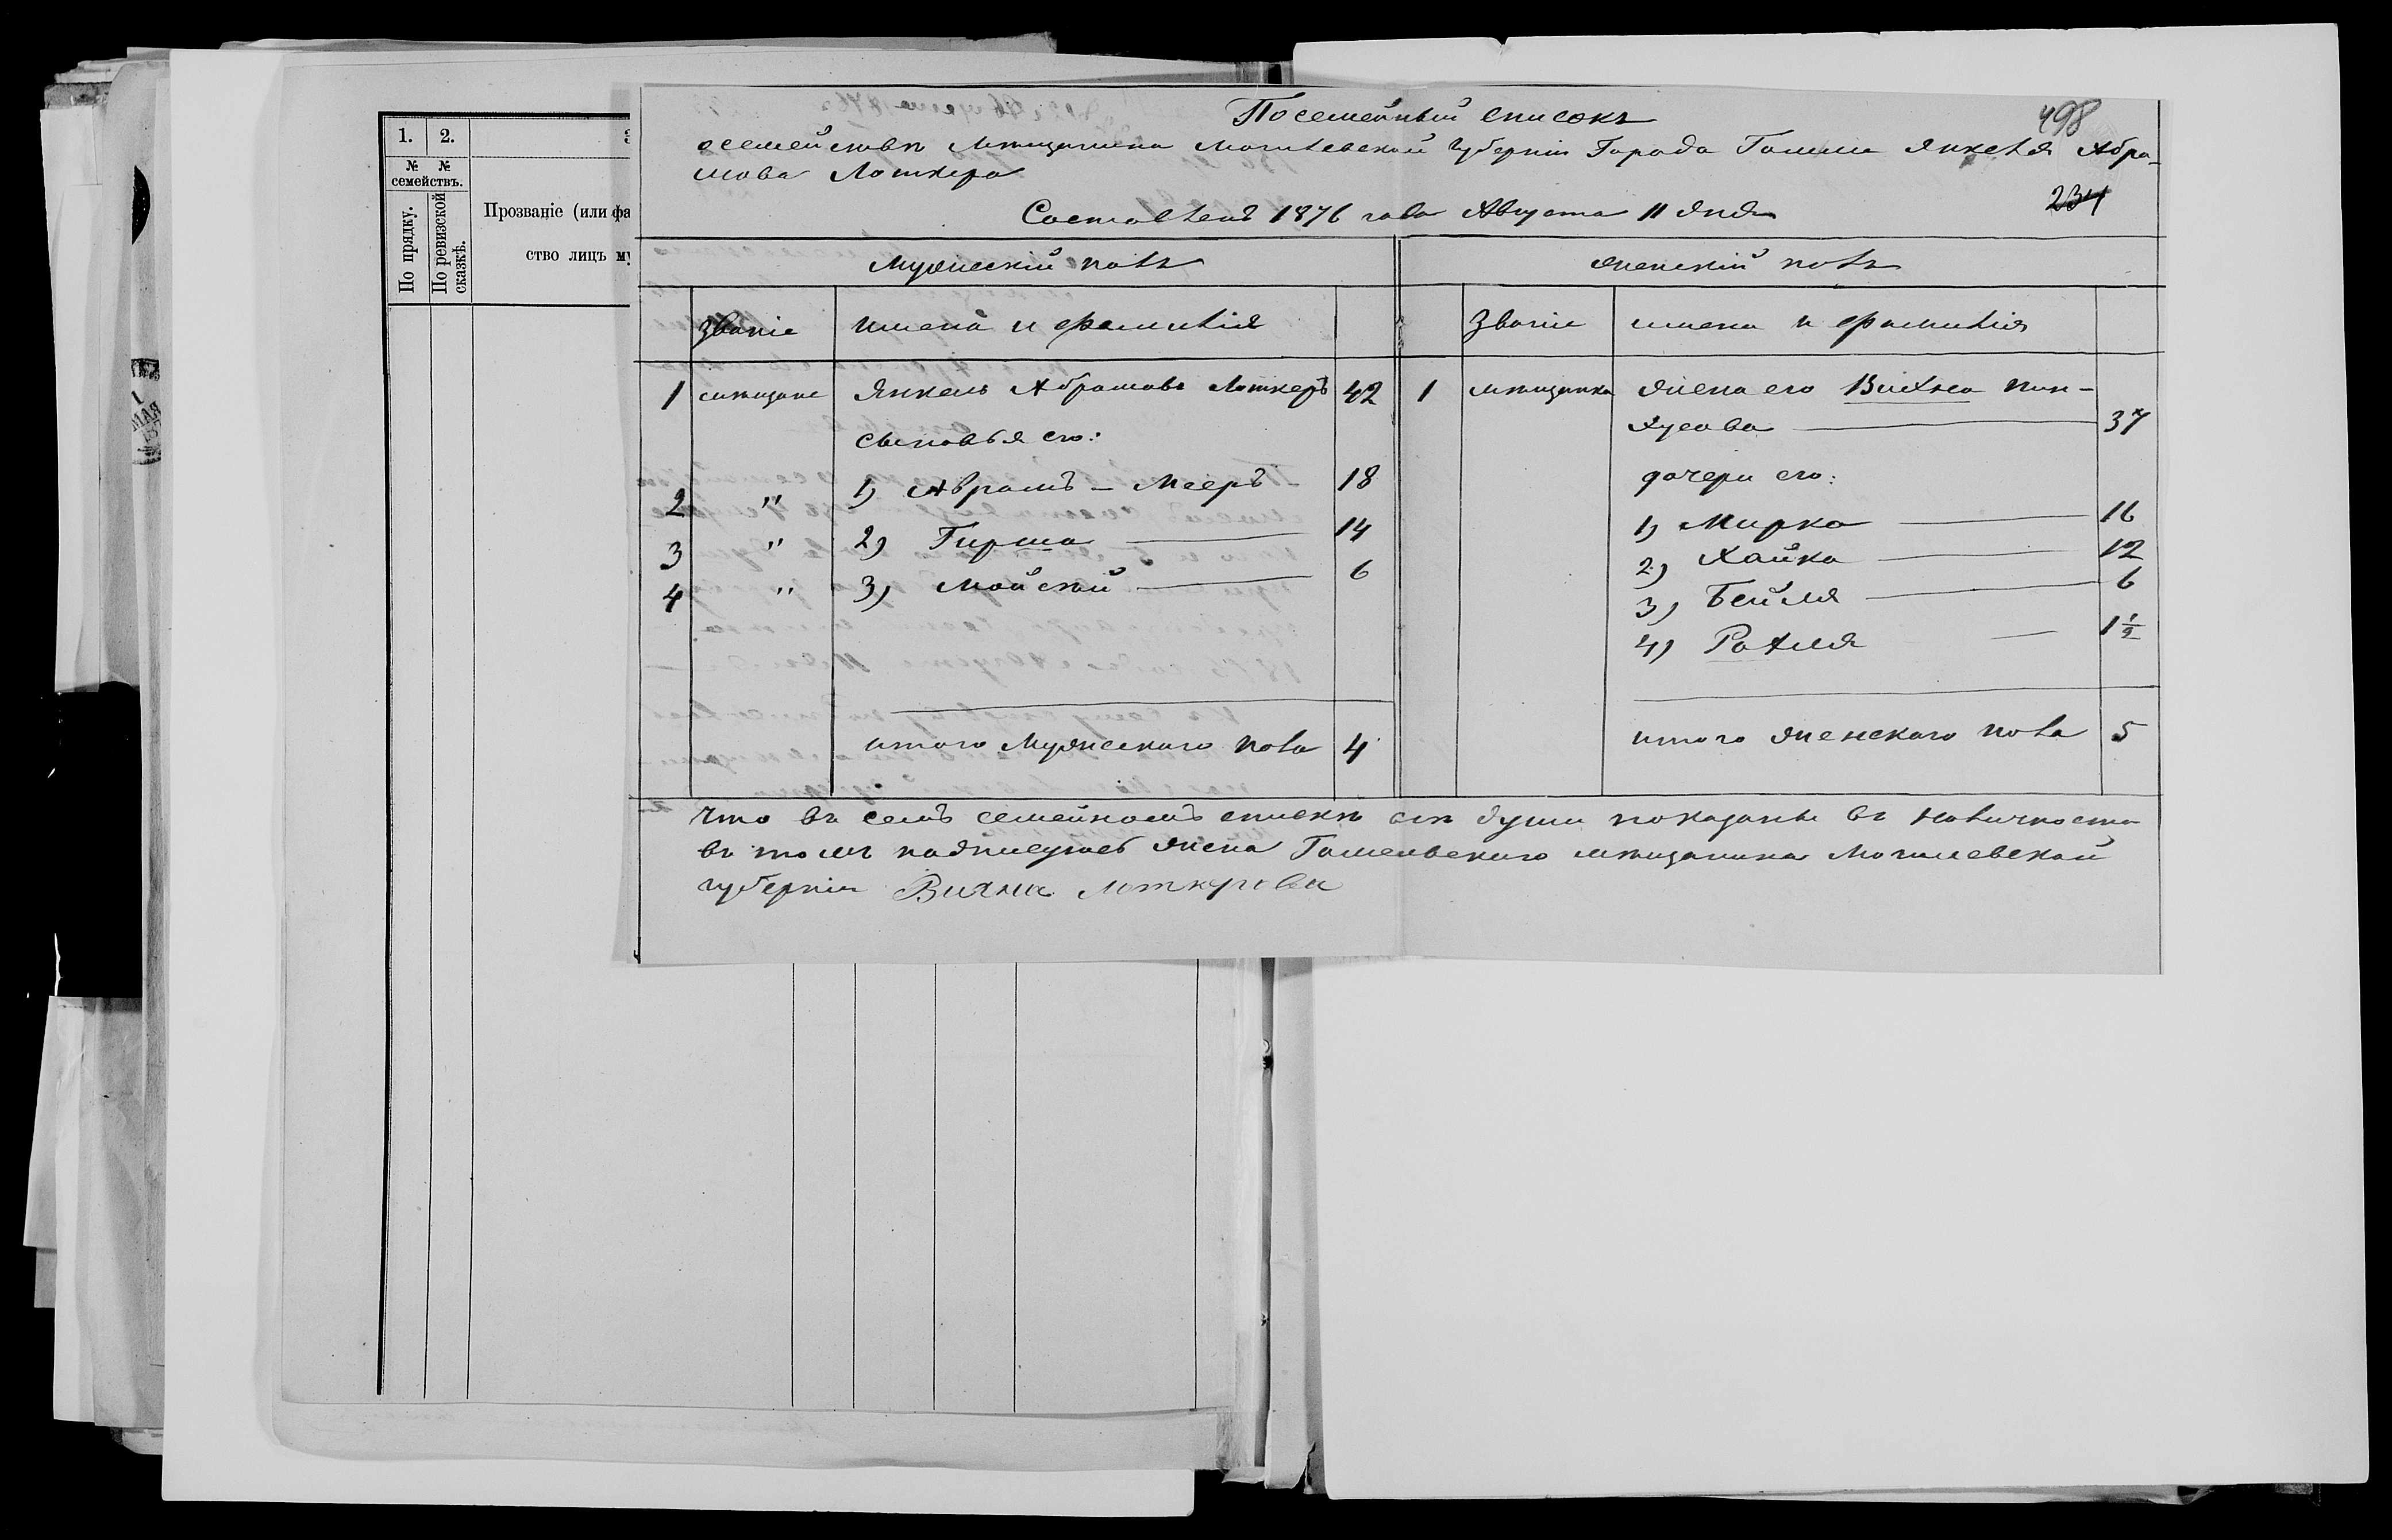 1. 2. 3
№ №
семействъ.
По прядку.
По ревизской
сказкѣ.
Прозваніе (или фа
ство лицъ му
МАЯ
498
Посемейный списокъ
о семействѣ мѣщанина Могилевской Губерніи Города Гомеля Янкеля Абра-
мова Лоткера
234
Составленъ 1876 года Августа 11 дня
Мужескій полъ
Женскій полъ
званіе имена и фамилія
званіе имена и фамилія
1 мѣщане Янкель Абрамовъ Лоткеръ 42
сыновья его:
2 " 1) Аврамъ - Мееръ 18
3 " 2) Гирша 14
4 " 3) Мойсей 6
итого Мужескаго пола 4
1 мѣщанка жена его Вихна Пин-
хусова 37
дочери его:
1) Мирка 16
2) Хайка 12
3) Бейля 6
4) Рахля 1 1/2
итого женскаго пола 5
Что въ семъ семейномъ спискѣ всѣ души показаны въ наличности
въ томъ подписуюсь жена Гомельвского мѣщанина Могилевской
губерніи Вихна Лоткерова